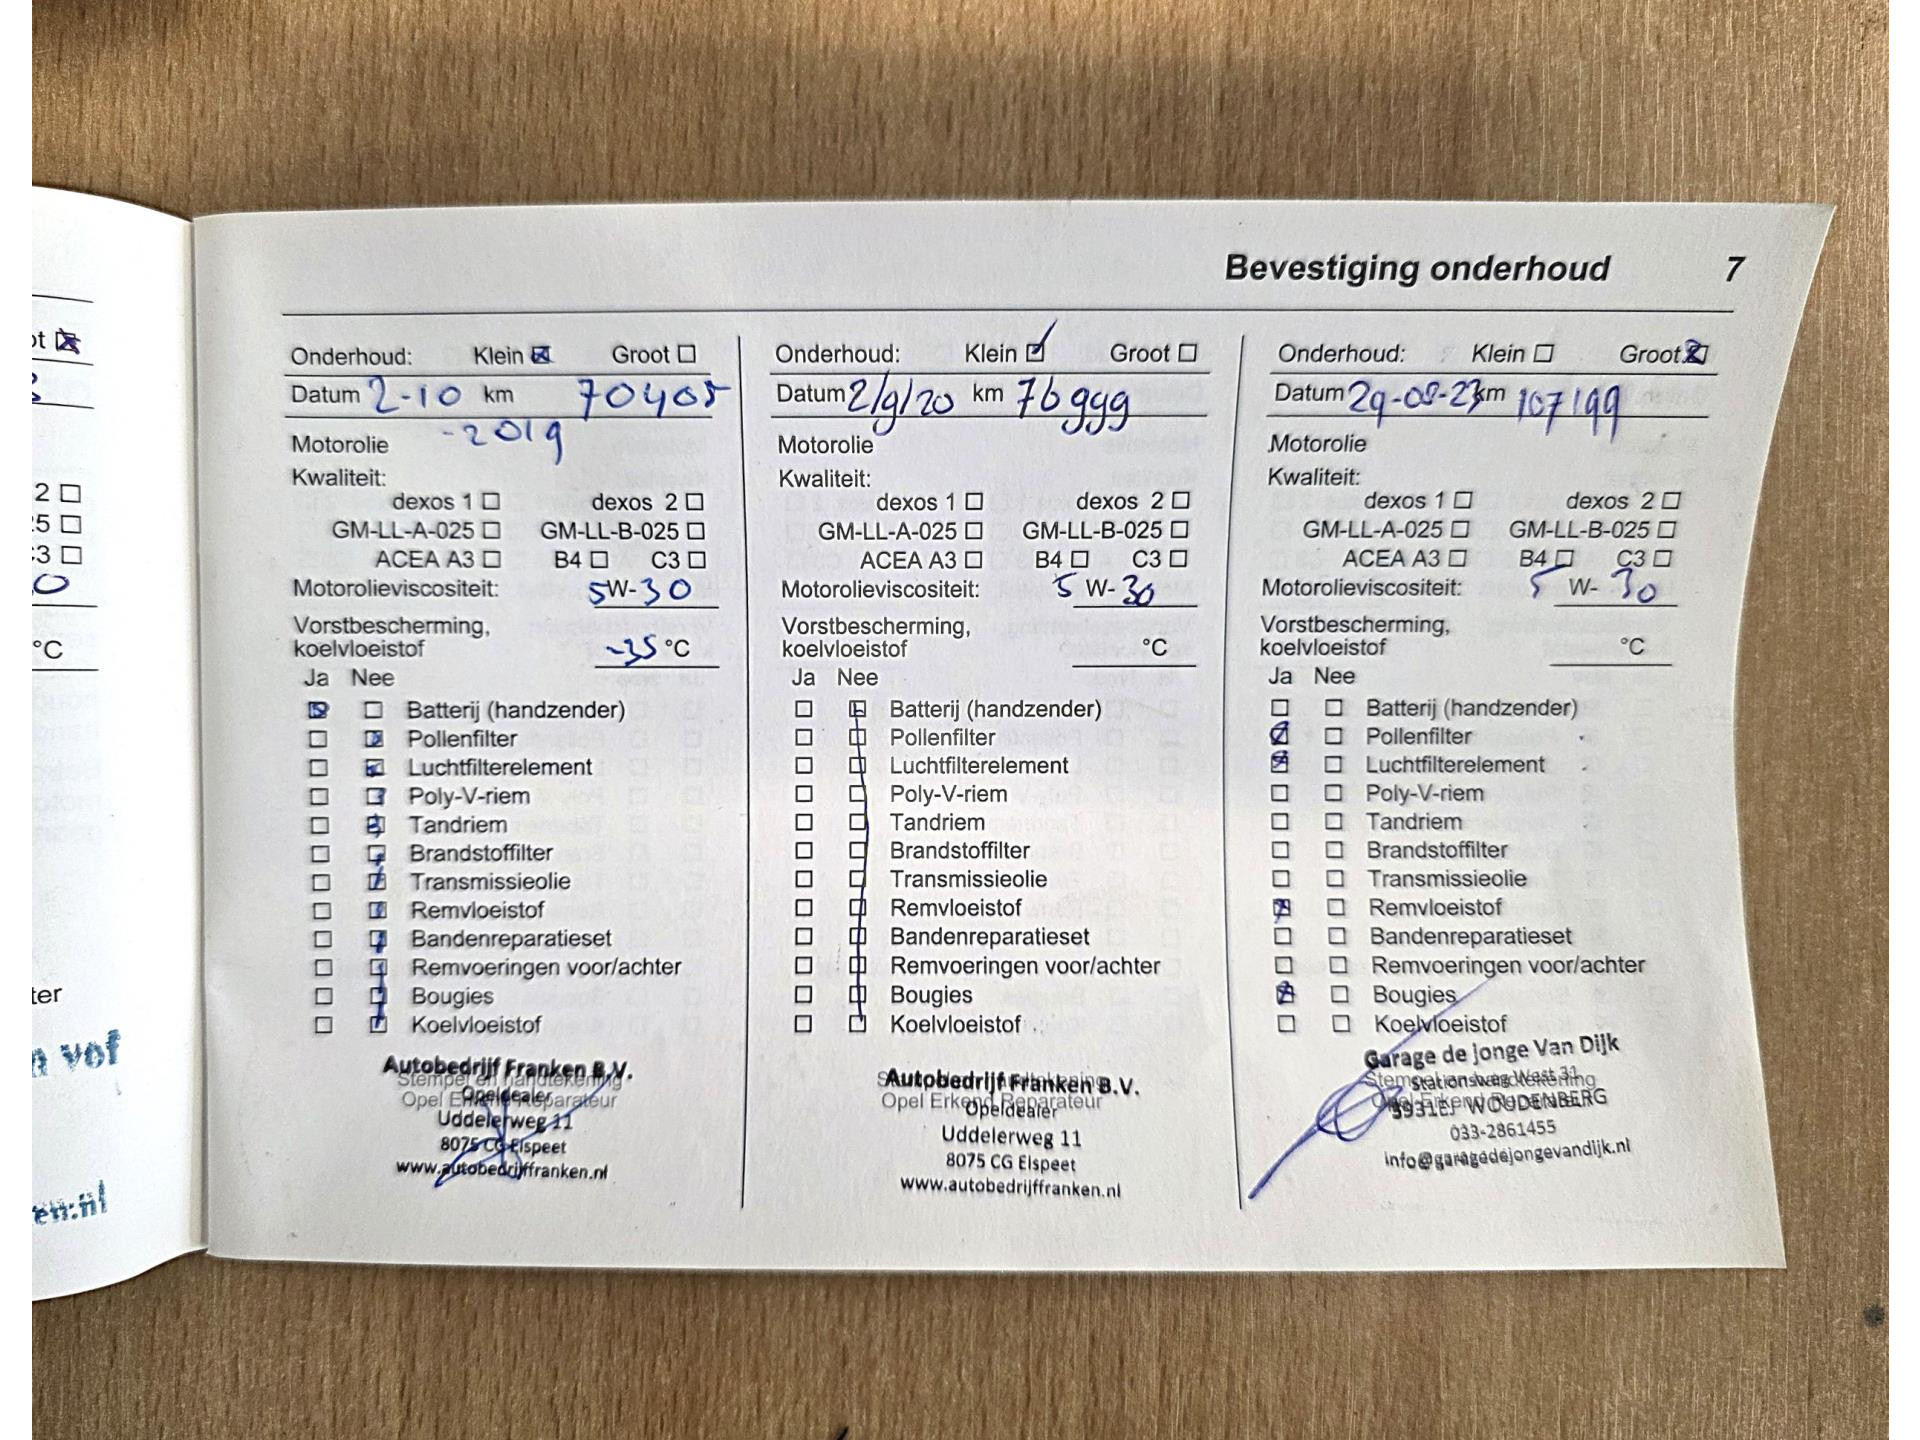 ot ☒
2 ☐
25 ☐
C3 ☐
0
°C
ter
n vof
en.nl
Bevestiging onderhoud 7
Onderhoud: Klein ☒ Groot ☐
Datum 2-10 km 70405
-2019
Motorolie
Kwaliteit:
dexos 1 ☐ dexos 2 ☐
GM-LL-A-025 ☐ GM-LL-B-025 ☐
ACEA A3 ☐ B4 ☐ C3 ☐
Motorolieviscositeit: 5W-30
Vorstbescherming,
koelvloeistof -35 °C
Ja Nee
☒ ☐ Batterij (handzender)
☐ ☒ Pollenfilter
☐ ☒ Luchtfilterelement
☐ ☒ Poly-V-riem
☐ ☒ Tandriem
☐ ☒ Brandstoffilter
☐ ☒ Transmissieolie
☐ ☒ Remvloeistof
☐ ☒ Bandenreparatieset
☐ ☒ Remvoeringen voor/achter
☐ ☒ Bougies
☐ ☒ Koelvloeistof
Autobedrijf Franken B.V.
Stempel en handtekening
Opeldealer
Opel Erkend Reparateur
Uddelerweg 11
8075 CG Elspeet
www.autobedrijffranken.nl
Onderhoud: Klein ☑ Groot ☐
Datum 2/9/20 km 76999
Motorolie
Kwaliteit:
dexos 1 ☐ dexos 2 ☐
GM-LL-A-025 ☐ GM-LL-B-025 ☐
ACEA A3 ☐ B4 ☐ C3 ☐
Motorolieviscositeit: 5 W-30
Vorstbescherming,
koelvloeistof °C
Ja Nee
☐ ☒ Batterij (handzender)
☐ ☒ Pollenfilter
☐ ☒ Luchtfilterelement
☐ ☒ Poly-V-riem
☐ ☒ Tandriem
☐ ☒ Brandstoffilter
☐ ☒ Transmissieolie
☐ ☒ Remvloeistof
☐ ☒ Bandenreparatieset
☐ ☒ Remvoeringen voor/achter
☐ ☒ Bougies
☐ ☒ Koelvloeistof
Autobedrijf Franken B.V.
Opel Erkend Reparateur
Opeldealer
Uddelerweg 11
8075 CG Elspeet
www.autobedrijffranken.nl
Onderhoud: Klein ☐ Groot ☒
Datum 29-08-23 km 107199
Motorolie
Kwaliteit:
dexos 1 ☐ dexos 2 ☐
GM-LL-A-025 ☐ GM-LL-B-025 ☐
ACEA A3 ☐ B4 ☐ C3 ☐
Motorolieviscositeit: 5 W-30
Vorstbescherming,
koelvloeistof °C
Ja Nee
☐ ☐ Batterij (handzender)
☒ ☐ Pollenfilter
☒ ☐ Luchtfilterelement
☐ ☐ Poly-V-riem
☐ ☐ Tandriem
☐ ☐ Brandstoffilter
☐ ☐ Transmissieolie
☒ ☐ Remvloeistof
☐ ☐ Bandenreparatieset
☐ ☐ Remvoeringen voor/achter
☒ ☐ Bougies
☐ ☐ Koelvloeistof
Garage de jonge Van Dijk
Stempel en handtekening
Stationsweg West 31
Opel Erkend Reparateur
3931EJ WOUDENBERG
033-2861455
info@garagedejongevandijk.nl